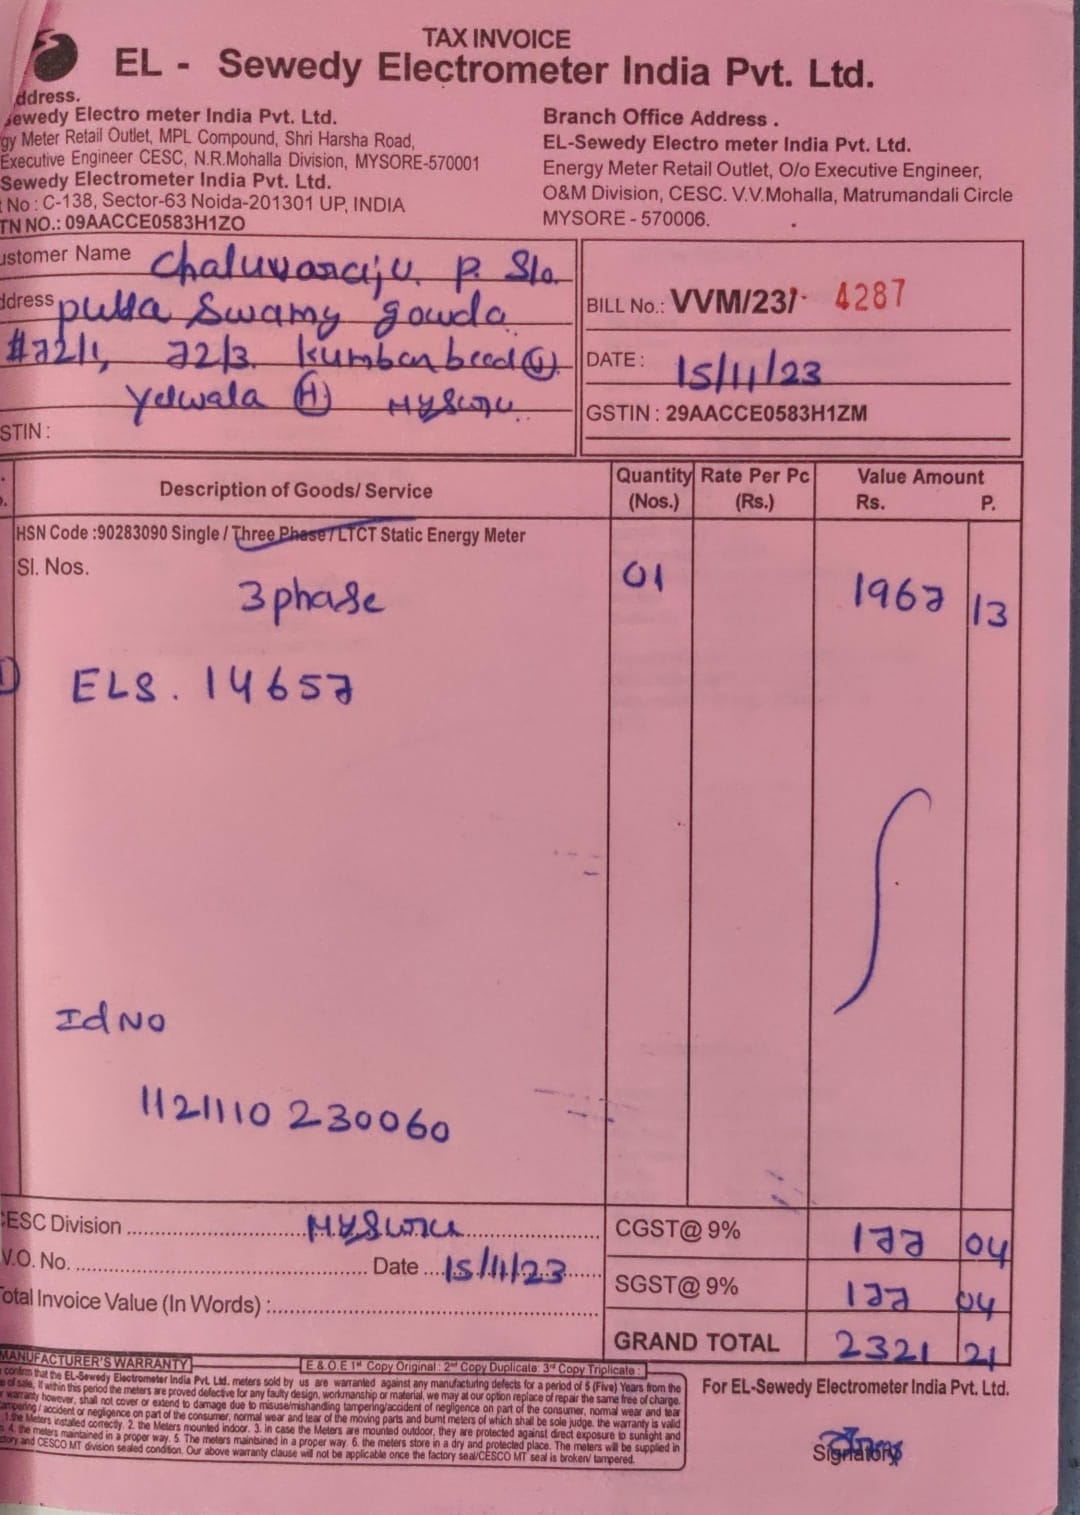 TAX INVOICE
EL - Sewedy Electrometer India Pvt. Ltd.
ddress.
Sewedy Electro meter India Pvt. Ltd.
gy Meter Retail Outlet, MPL Compound, Shri Harsha Road,
Executive Engineer CESC, N.R.Mohalla Division, MYSORE-570001
Sewedy Electrometer India Pvt. Ltd.
No : C-138, Sector-63 Noida-201301 UP, INDIA
TN NO.: 09AACCE0583H1ZO
Branch Office Address .
EL-Sewedy Electro meter India Pvt. Ltd.
Energy Meter Retail Outlet, O/o Executive Engineer,
O&M Division, CESC. V.V.Mohalla, Matrumandali Circle
MYSORE - 570006.
ustomer Name Chaluvaraju. P. S/o.
ddress putta Swamy gowda
#72/1, 72/3. Kumbarbeed
Yelwala (H) Mysore
STIN :
BILL No.: VVM/23/- 4287
DATE : 15/11/23
GSTIN : 29AACCE0583H1ZM
Description of Goods/ Service
Quantity (Nos.)
Rate Per Pc (Rs.)
Value Amount
Rs. P.
HSN Code :90283090 Single / Three Phase / LTCT Static Energy Meter
Sl. Nos.
3 phase 01 1967 13
1) ELS. 14657
Id No
1121110 230060
CESC Division Mysore
V.O. No. Date 15/11/23
otal Invoice Value (In Words) :
CGST@ 9% 177 04
SGST@ 9% 177 04
GRAND TOTAL 2321 21
MANUFACTURER'S WARRANTY
E.& O.E 1st Copy Original : 2nd Copy Duplicate: 3rd Copy Triplicate :
confirm that the EL-Sewedy Electrometer India Pvt. Ltd. meters sold by us are warranted against any manufacturing defects for a period of 5 (Five) Years from the
of sale. If within this period the meters are proved defective for any faulty design, workmanship or material, we may at our option replace of repair the same free of charge.
warranty however, shall not cover or extend to damage due to misuse/mishandling tampering/accident of negligence on part of the consumer, normal wear and tear
ampering / accident or negligence on part of the consumer, normal wear and tear of the moving parts and burnt meters of which shall be sole judge. the warranty is valid
1.the Meters installed correctly. 2. the Meters mounted indoor. 3. in case the Meters are mounted outdoor, they are protected against direct exposure to sunlight and
4. the meters maintained in a proper way. 5. The meters maintained in a proper way. 6. the meters store in a dry and protected place. The meters will be supplied in
tory and CESCO MT division sealed condition. Our above warranty clause will not be applicable once the factory seal/CESCO MT seal is broken/ tampered.
For EL-Sewedy Electrometer India Pvt. Ltd.
Signatory